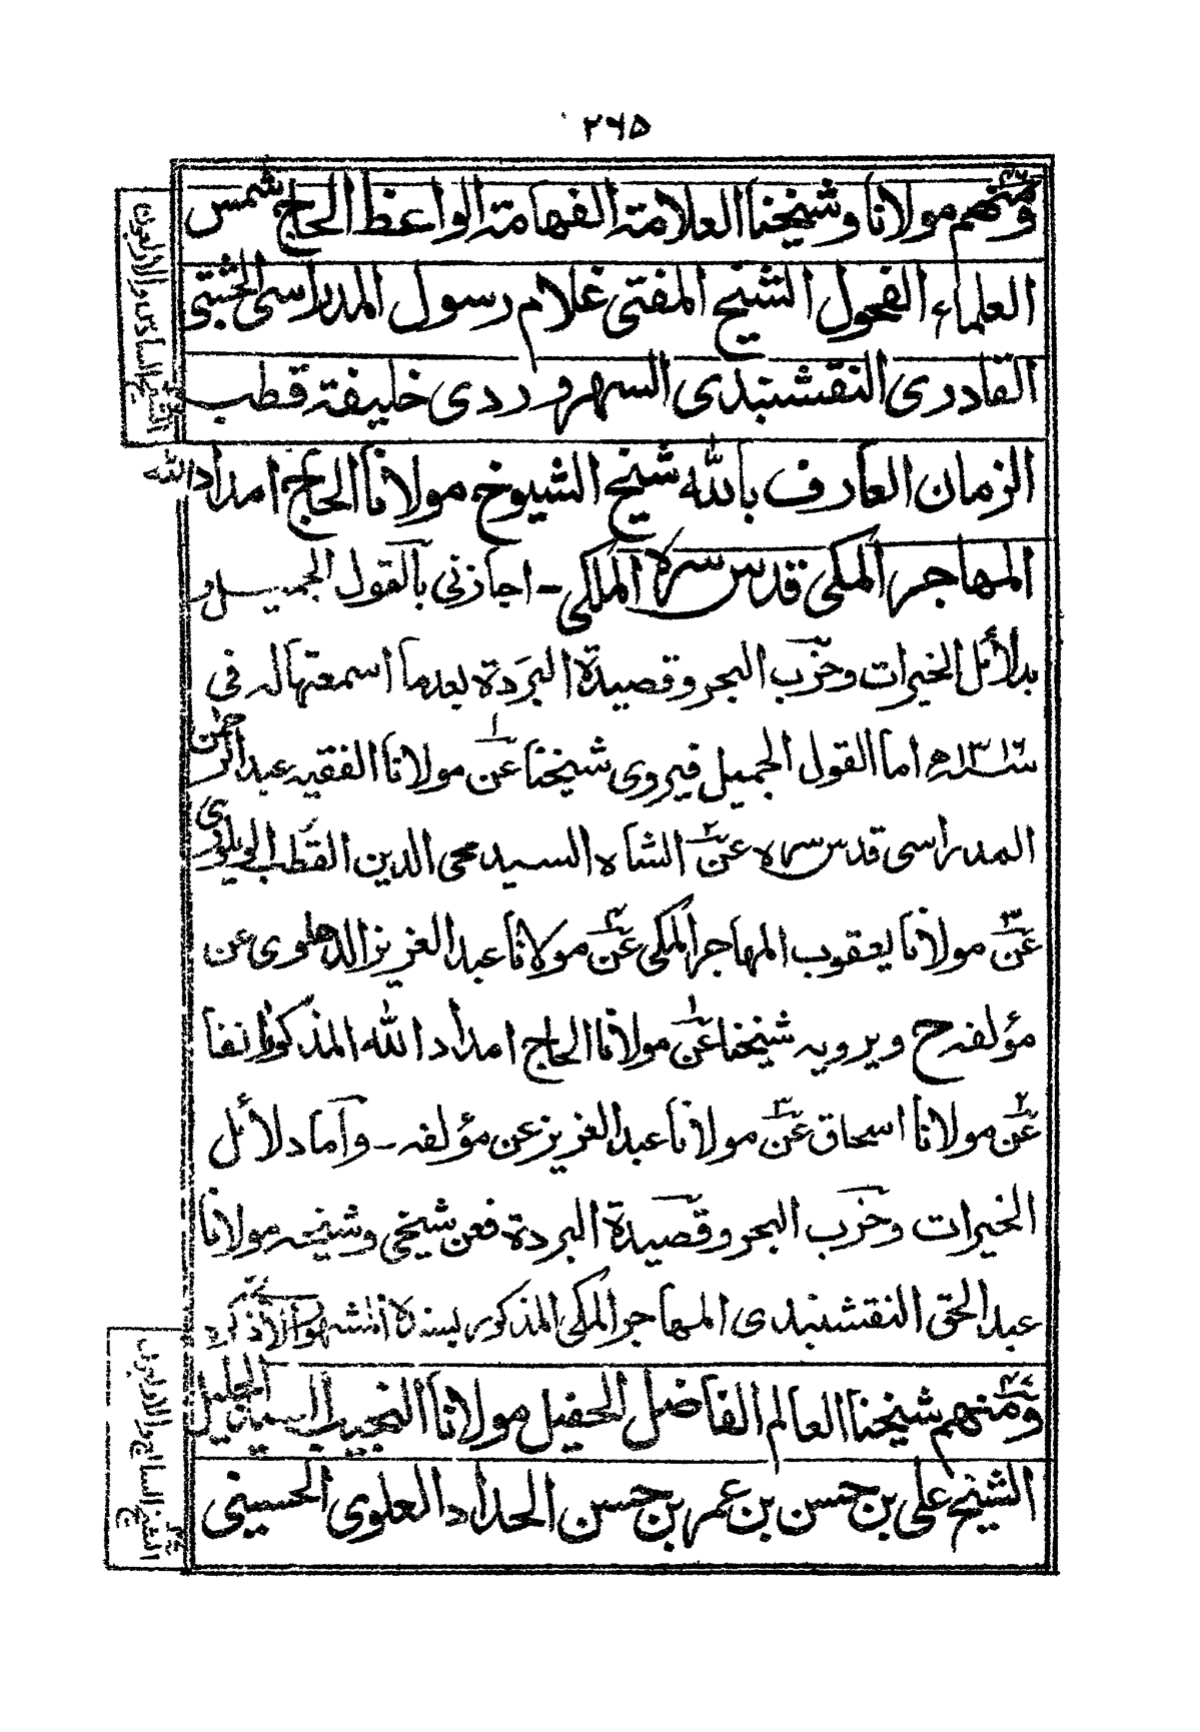 ٢٦٥
ومنهم مولانا وشيخنا العلامة الفهامة الواعظ الحاج شمس
٤٦
العلماء الفحول الشيخ المفتى غلام رسول المدراسى الچشتى
القادرى النقشبندى السهروردى خليفة قطب
الزمان العارف بالله شيخ الشيوخ مولانا الحاج امداد الله
المهاجر المكى قدس سره الملكى ـ اجازنى بالقول الجميل و
بدلائل الخيرات وحزب البحر وقصيدة البردة بعدما اسمعتها له فى
سنة ١٣١٦ھ اما القول الجميل فيروى شيخنا عن١ مولانا الفقيه عبد الرحمن
المدراسى قدس سره عن٢ الشاه السيد محى الدين القطب الويلورى
عن٣ مولانا يعقوب المهاجر المكى عن٤ مولانا عبد العزيز الدهلوى عن
مؤلفه ح ويرويه شيخنا عن١ مولانا الحاج امداد الله المذكور انفا
عن٢ مولانا اسحاق عن٣ مولانا عبد العزيز عن مؤلفه ـ واما دلائل
الخيرات وحزب البحر وقصيدة البردة فعن شيخى وشيخه مولانا
عبد الحق النقشبندى المهاجر المكى المذكور بسنده المشهور
ومنهم شيخنا العالم الفاضل الحفيل مولانا النجيب السيد الجليل
٤٧
الشيخ على بن حسن بن عمر بن حسن الحداد العلوى الحسينى
الشيخ السادس والاربعون
٤٦
الشيخ السابع والاربعون
٤٧